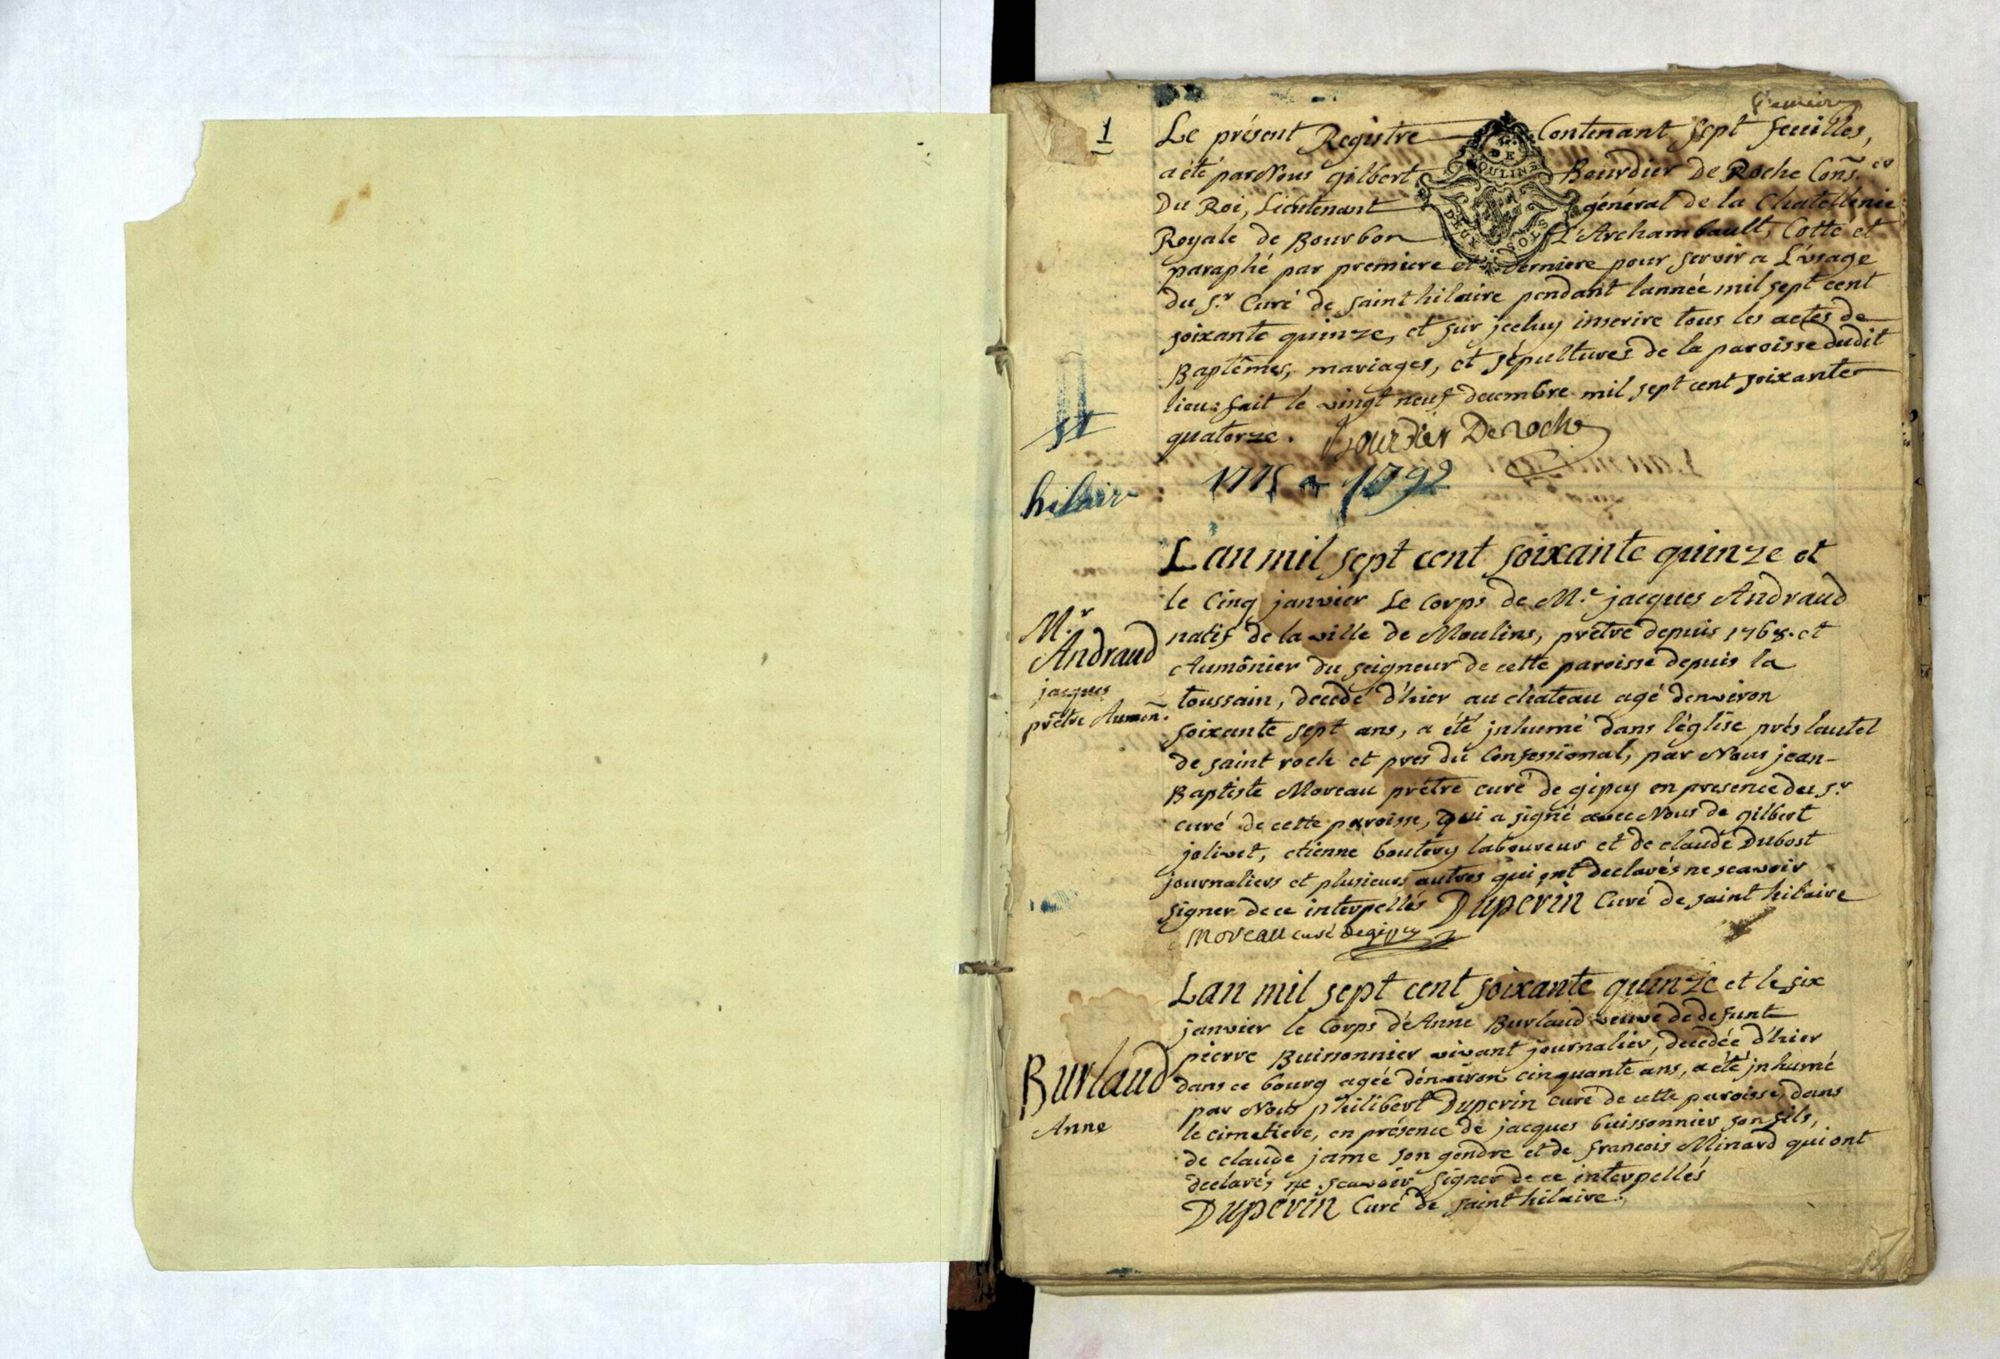 1
Le présent Registre Contenant sept feuilles,
a été par Nous Gilbert Bourdier De Roche Cons.er
Du Roi, Lieutenant général de la Chatellenie
Royale de Bourbon L'Archambault, Cotté et
paraphé par premiere et derniere pour servir a L'usage
du S.r Curé de saint hilaire pendant lannée mil sept cent
soixante quinze, et sur jceluy inscrire tous les actes de
Baptêmes, mariages, et sépultures de la paroisse dudit
lieu: fait le vingt neuf decembre mil sept cent soixante
quatorze. Bourdier De Roche
DE
MOULINS
DEUX SOLS
St
hilaire
1775 a 1792
L'an mil sept cent soixante quinze et
le Cinq janvier Le Corps de M.e jacques Andraud
natif de la ville de Moulins, prêtre depuis 1768. et
Aumônier du seigneur de cette paroisse depuis la
toussain, decedé d'hier au chateau agé denviron
soixante sept ans, a été jnhumé dans l'église prés lautel
de saint roch et pres du Confessional, par Nous jean-
Baptiste Moreau prêtre curé de gipcy en presence du S.r
curé de cette paroisse, qui a signé avec Nous de gilbert
jolivet, etienne boutery laboureur et de claude Dubost
journaliers et plusieurs autres qui ont declarés ne scavoir
signer de ce interpellés Duperin Curé de saint hilaire
Moreau curé de gipcy
M.r
Andraud
jacques
prêtre Aumôn.
Lan mil sept cent soixante quinze et le six
janvier le Corps d'Anne Burlaud veuve de defunt
pierre Buissonnier vivant journalier, decedée d'hier
dans ce bourg agée dénviron cinquante ans, a été jnhumé
par Nous philibert Duperin curé de cette paroisse, dans
le cimetiere, en présence de jacques buissonnier son fils,
de claude jame son gendre et de francois Minard qui ont
declarés ne scavoir signer de ce interpellés
Duperin Curé de saint hilaire.
Burlaud
Anne